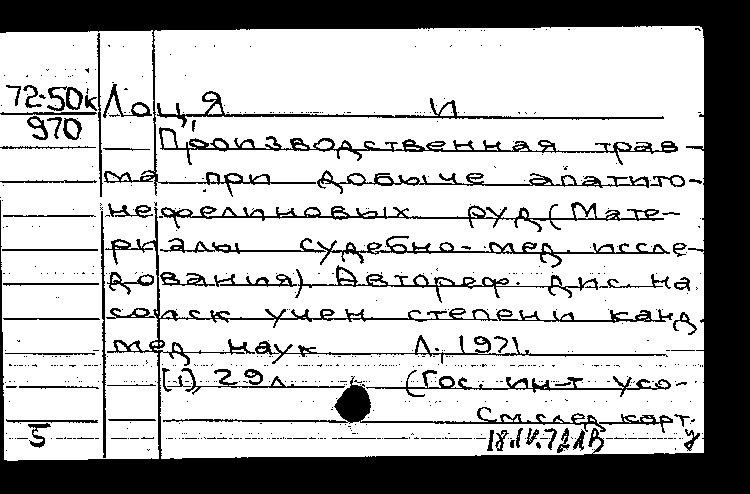 72-50к Лоц, Я И
970
Производственная трав-
ма при добыче апатито-
нефелиновых руд (Мате-
риалы судебно-мед. иссле-
дования). Автореф. дис. на
соиск. учен. степени канд.
мед. наук Л., 1971.
[1], 29 л. (Гос. ин-т усо-
См. след. карт.
5 18.IV.72 ЛВ у